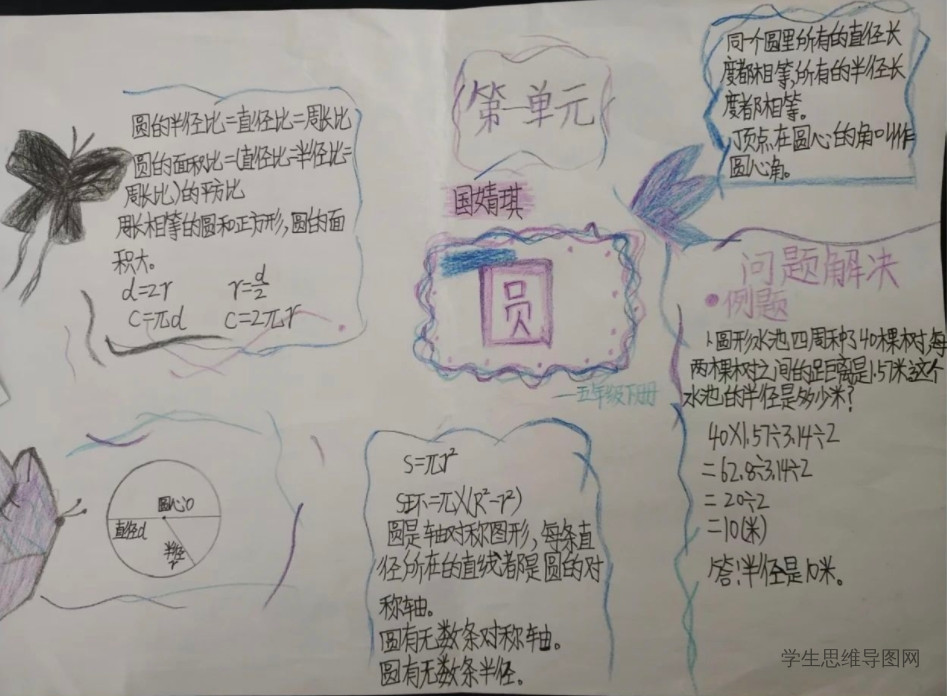 第一单元
国婧琪
圆
一五年级下册
圆的半径比=直径比=周长比
圆的面积比=(直径比=半径比=
周长比)的平方比
周长相等的圆和正方形,圆的面
积大。
d=2r r=d/2
C=πd C=2πr
圆心O
直径d
半径
r
S=πr²
S环=π×(R²-r²)
圆是轴对称图形,每条直
径所在的直线都是圆的对
称轴。
圆有无数条对称轴。
圆有无数条半径。
同一个圆里所有的直径长
度都相等,所有的半径长
度都相等。
顶点在圆心的角叫作
圆心角。
问题解决
例题
1、圆形水池四周种了40棵树,每
两棵树之间的距离是1.57米,这个
水池的半径是多少米?
40×1.57÷3.14÷2
=62.8÷3.14÷2
=20÷2
=10(米)
答:半径是10米。
学生思维导图网